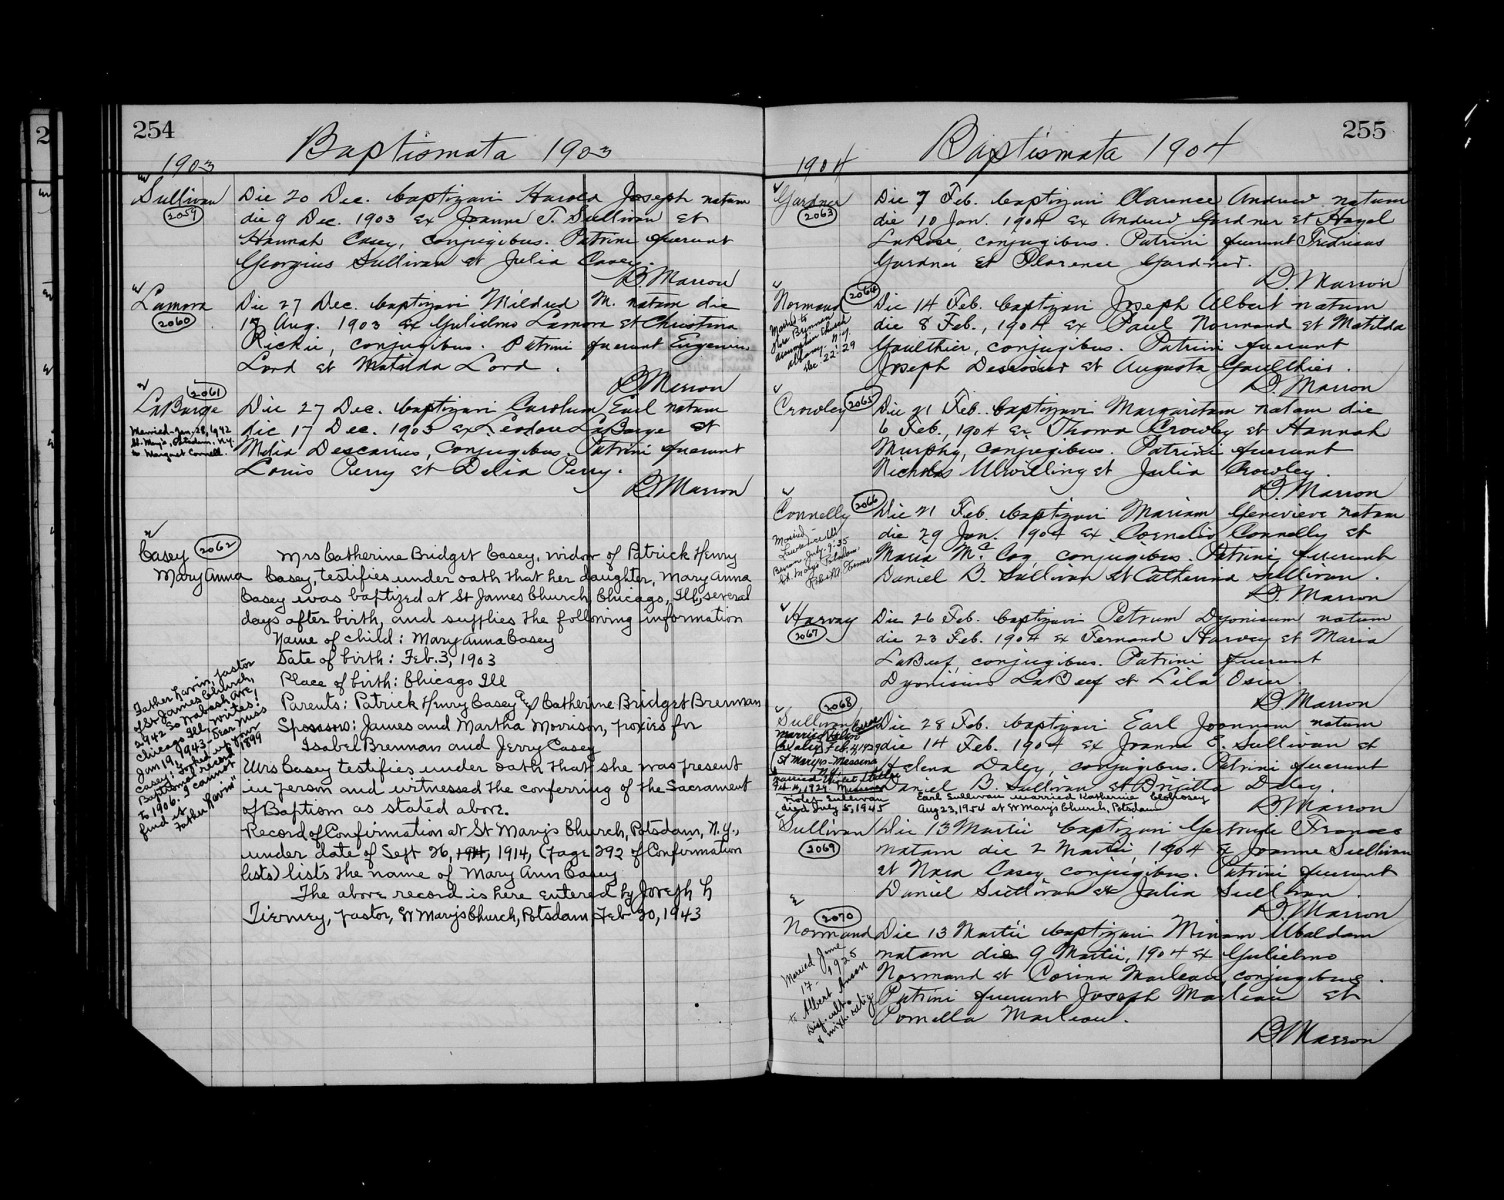 254
Baptismata 1903
1903
Sullivan
2059
Die 20 Dec. baptizavi Harold Joseph natum
die 9 Dec. 1903 ex Joanne T. Sullivan et
Hannah Casey, conjugibus. Patrini fuerunt
Georgius Sullivan et Julia Casey.
D. Marron
Lamora
2060
Die 27 Dec. baptizavi Mildred M. natam die
Aug. 1903 ex Gulielmo Lamora et Christina
Richie, conjugibus. Patrini fuerunt Eugenius
Lord et Matilda Lord.
D. Marron
2061
LaBarge
Married Jan. 28, 1942
St. Mary's, Potsdam, N.Y.
to Margaret Connell.
Die 27 Dec. baptizavi Carolum Earl natum
die 17 Dec. 1903 ex LaBarge et
Melia Descarius, conjugibus. Patrini fuerunt
Louis Perry et Delia Perry.
D. Marron
Casey 2062
Mary Anna
Mrs Catherine Bridget Casey, widow of Patrick Henry
Casey, testifies under oath that her daughter, Mary Anna
Casey was baptized at St James Church, Chicago, Ill, several
days after birth, and supplies the following information
Name of child: Mary Anna Casey
Date of birth: Feb. 3, 1903
Place of birth: Chicago Ill
Parents: Patrick Henry Casey & Catherine Bridget Brennan
Sponsors: James and Martha Morrison, proxies for
Isabel Brennan and Jerry Casey
Mrs Casey testifies under oath that she was present
in person and witnessed the conferring of the Sacrament
of Baptism as stated above.
Record of Confirmation at St Mary's Church, Potsdam, N.Y.,
under date of Sept 26, 1911, 1914, (page 292 of Confirmation
lists) lists the name of Mary Ann Casey
The above record is here entered by Joseph L
Tierney, pastor, St Mary's Church, Potsdam Feb 20, 1943
Father Lavin, pastor
of St James Church,
2942 So Wabash Ave,
Chicago Ill, writes:
Jan 19, 1943. Dear Miss
Casey: Looked up your
Baptismal record from 1899
to 1906. I cannot
find it.
Father Lavin"
255
Baptismata 1904
1904
Gardner
2063
Die 7 Feb. baptizavi Clarence Andrew natum
die 10 Jan. 1904 ex Andrew Gardner et Hazel
LaRose, conjugibus. Patrini fuerunt Fredricus
Gardner et Florence Gardner.
D. Marron
Normand 2064
Married to
Brennan
Church
Albany, N.Y.
Dec. 22 '29
Die 14 Feb. baptizavi Joseph Albert natum
die 8 Feb., 1904 ex Paul Normand et Matilda
Gaulthier, conjugibus. Patrini fuerunt
Joseph Desrosier et Augusta Gaulthier.
D. Marron
Crowley 2065
Die 21 Feb. baptizavi Margaritam natam die
6 Feb., 1904 ex Thoma Crowley et Hannah
Murphy, conjugibus. Patrini fuerunt
Nicholas Ulwilling et Julia Crowley.
D. Marron
Connelly 2066
Married
Lawrence
July 9 '35
St. Mary's Potsdam
Die 21 Feb. baptizavi Mariam Genevieve natam
die 29 Jan. 1904 ex Cornelio Connelly et
Maria McCoy conjugibus. Patrini fuerunt
Daniel B. Sullivan et Catherina Sullivan.
D. Marron
Harvey
2067
Die 26 Feb. baptizavi Petrum Dyonisium natum
die 23 Feb. 1904 ex Fernand Harvey et Maria
LaBeef, conjugibus. Patrini fuerunt
Dyonisius LaBeef et Lila Osier.
D. Marron
2068
Sullivan
Married Helen
Feb. 4, 1929
St Mary's - Massena
N.Y.
Feb 4, 1929, Massena
died July 5, 1945
Die 28 Feb. baptizavi Earl Joannem natum
die 14 Feb. 1904 ex Joanne E. Sullivan et
Helena Daley, conjugibus. Patrini fuerunt
Daniel B. Sullivan et Brigitta Daley.
Earl Sullivan married Katherine
Aug 23, 1954 at St Mary's Church, Potsdam
D. Marron
Sullivan
2069
Die 13 Martii baptizavi Gertrude Frances
natam die 2 Martii, 1904 ex Joanne Sullivan
et Nora Casey, conjugibus. Patrini fuerunt
Daniel Sullivan et Julia Sullivan
D. Marron
2070
Normand
Married June
17 - 1925
to Albert
Die 13 Martii baptizavi Miriam Ubaldam
natam die 9 Martii, 1904 ex Gulielmo
Normand et Corina Marleau, conjugibus.
Patrini fuerunt Joseph Marleau et
Pomella Marleau.
D. Marron